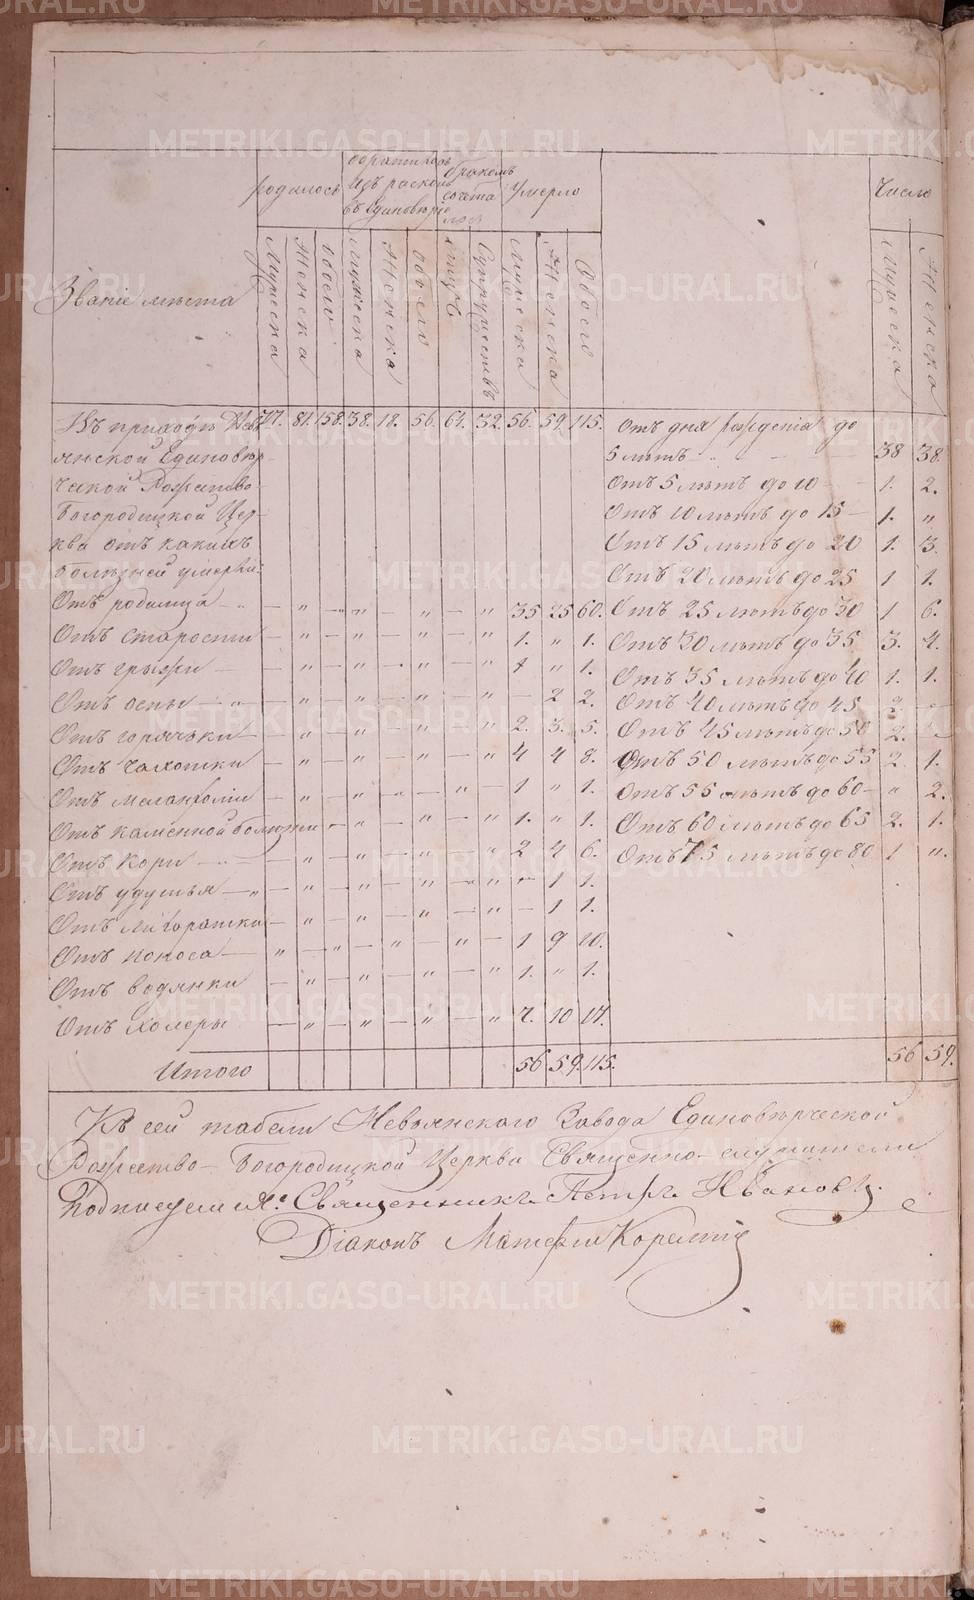 METRIKI.GASO-URAL.RU
Званіе мѣста
родилось
обратилось изъ раскола въ Единовѣріе
бракомъ сочеталось
умерло
Число
Мужеска
Женска
обоего
Мужеска
Женска
обоего
лицъ
Супружествъ
Мужеска
Женска
Обоего
Мужеска
Женска
Въ приходѣ Невь 77. 81. 158. 38. 18. 56. 64. 32. 56. 59. 115.
янской Единовѣр-
ческой Рожество-
Богородицкой Цер-
кви отъ какихъ
болѣзней умерли:
Отъ родимца — " — " — " — " — " 35 25 60.
Отъ старости — " — " — " — " 1. " 1.
Отъ грыжи — " — " — " — " 1 " 1.
Отъ оспы — " — " — " — " — " — 2 2.
Отъ горячьки — " — " — " — " 2. 3. 5.
Отъ чахотки — " — " — " — " 4 4 8.
Отъ меланхоліи — " — " — " — " — 1 " 1.
Отъ каменной болѣзни — " — " — " — " 1. " 1.
Отъ кори — " — " — " — " — " 2 4 6.
Отъ удушья — " — " — " — " — " — 1 1.
Отъ — " — " — " — " — 1 1.
Отъ поноса — " — " — " — " — 1 9 10.
Отъ водянки — " — " — " — " 1. " 1.
Отъ Холеры — " — " — " — " 7. 10 17.
Итого 56 59. 115.
Отъ дня рожденія до
5 лѣтъ — " — 38 38.
Отъ 5 лѣтъ до 10 — 1. 2.
Отъ 10 лѣтъ до 15 — 1. "
Отъ 15 лѣтъ до 20 1. 3.
Отъ 20 лѣтъ до 25 1 1.
Отъ 25 лѣтъ до 30 1 6.
Отъ 30 лѣтъ до 35 3. 4.
Отъ 35 лѣтъ до 40 1. 1.
Отъ 40 лѣтъ до 45 2.
Отъ 45 лѣтъ до 50 2.
Отъ 50 лѣтъ до 55 2. 1.
Отъ 55 лѣтъ до 60 — " 2.
Отъ 60 лѣтъ до 65 2. 1.
Отъ 75 лѣтъ до 80 1 ".
56 59.
Къ сей табели Невьянскаго Завода Единовѣрческой
Рожество-Богородицкой Церкви Священно-служители
Подписуемся: Священникъ Петръ Ивановъ.
Діаконъ Матфей